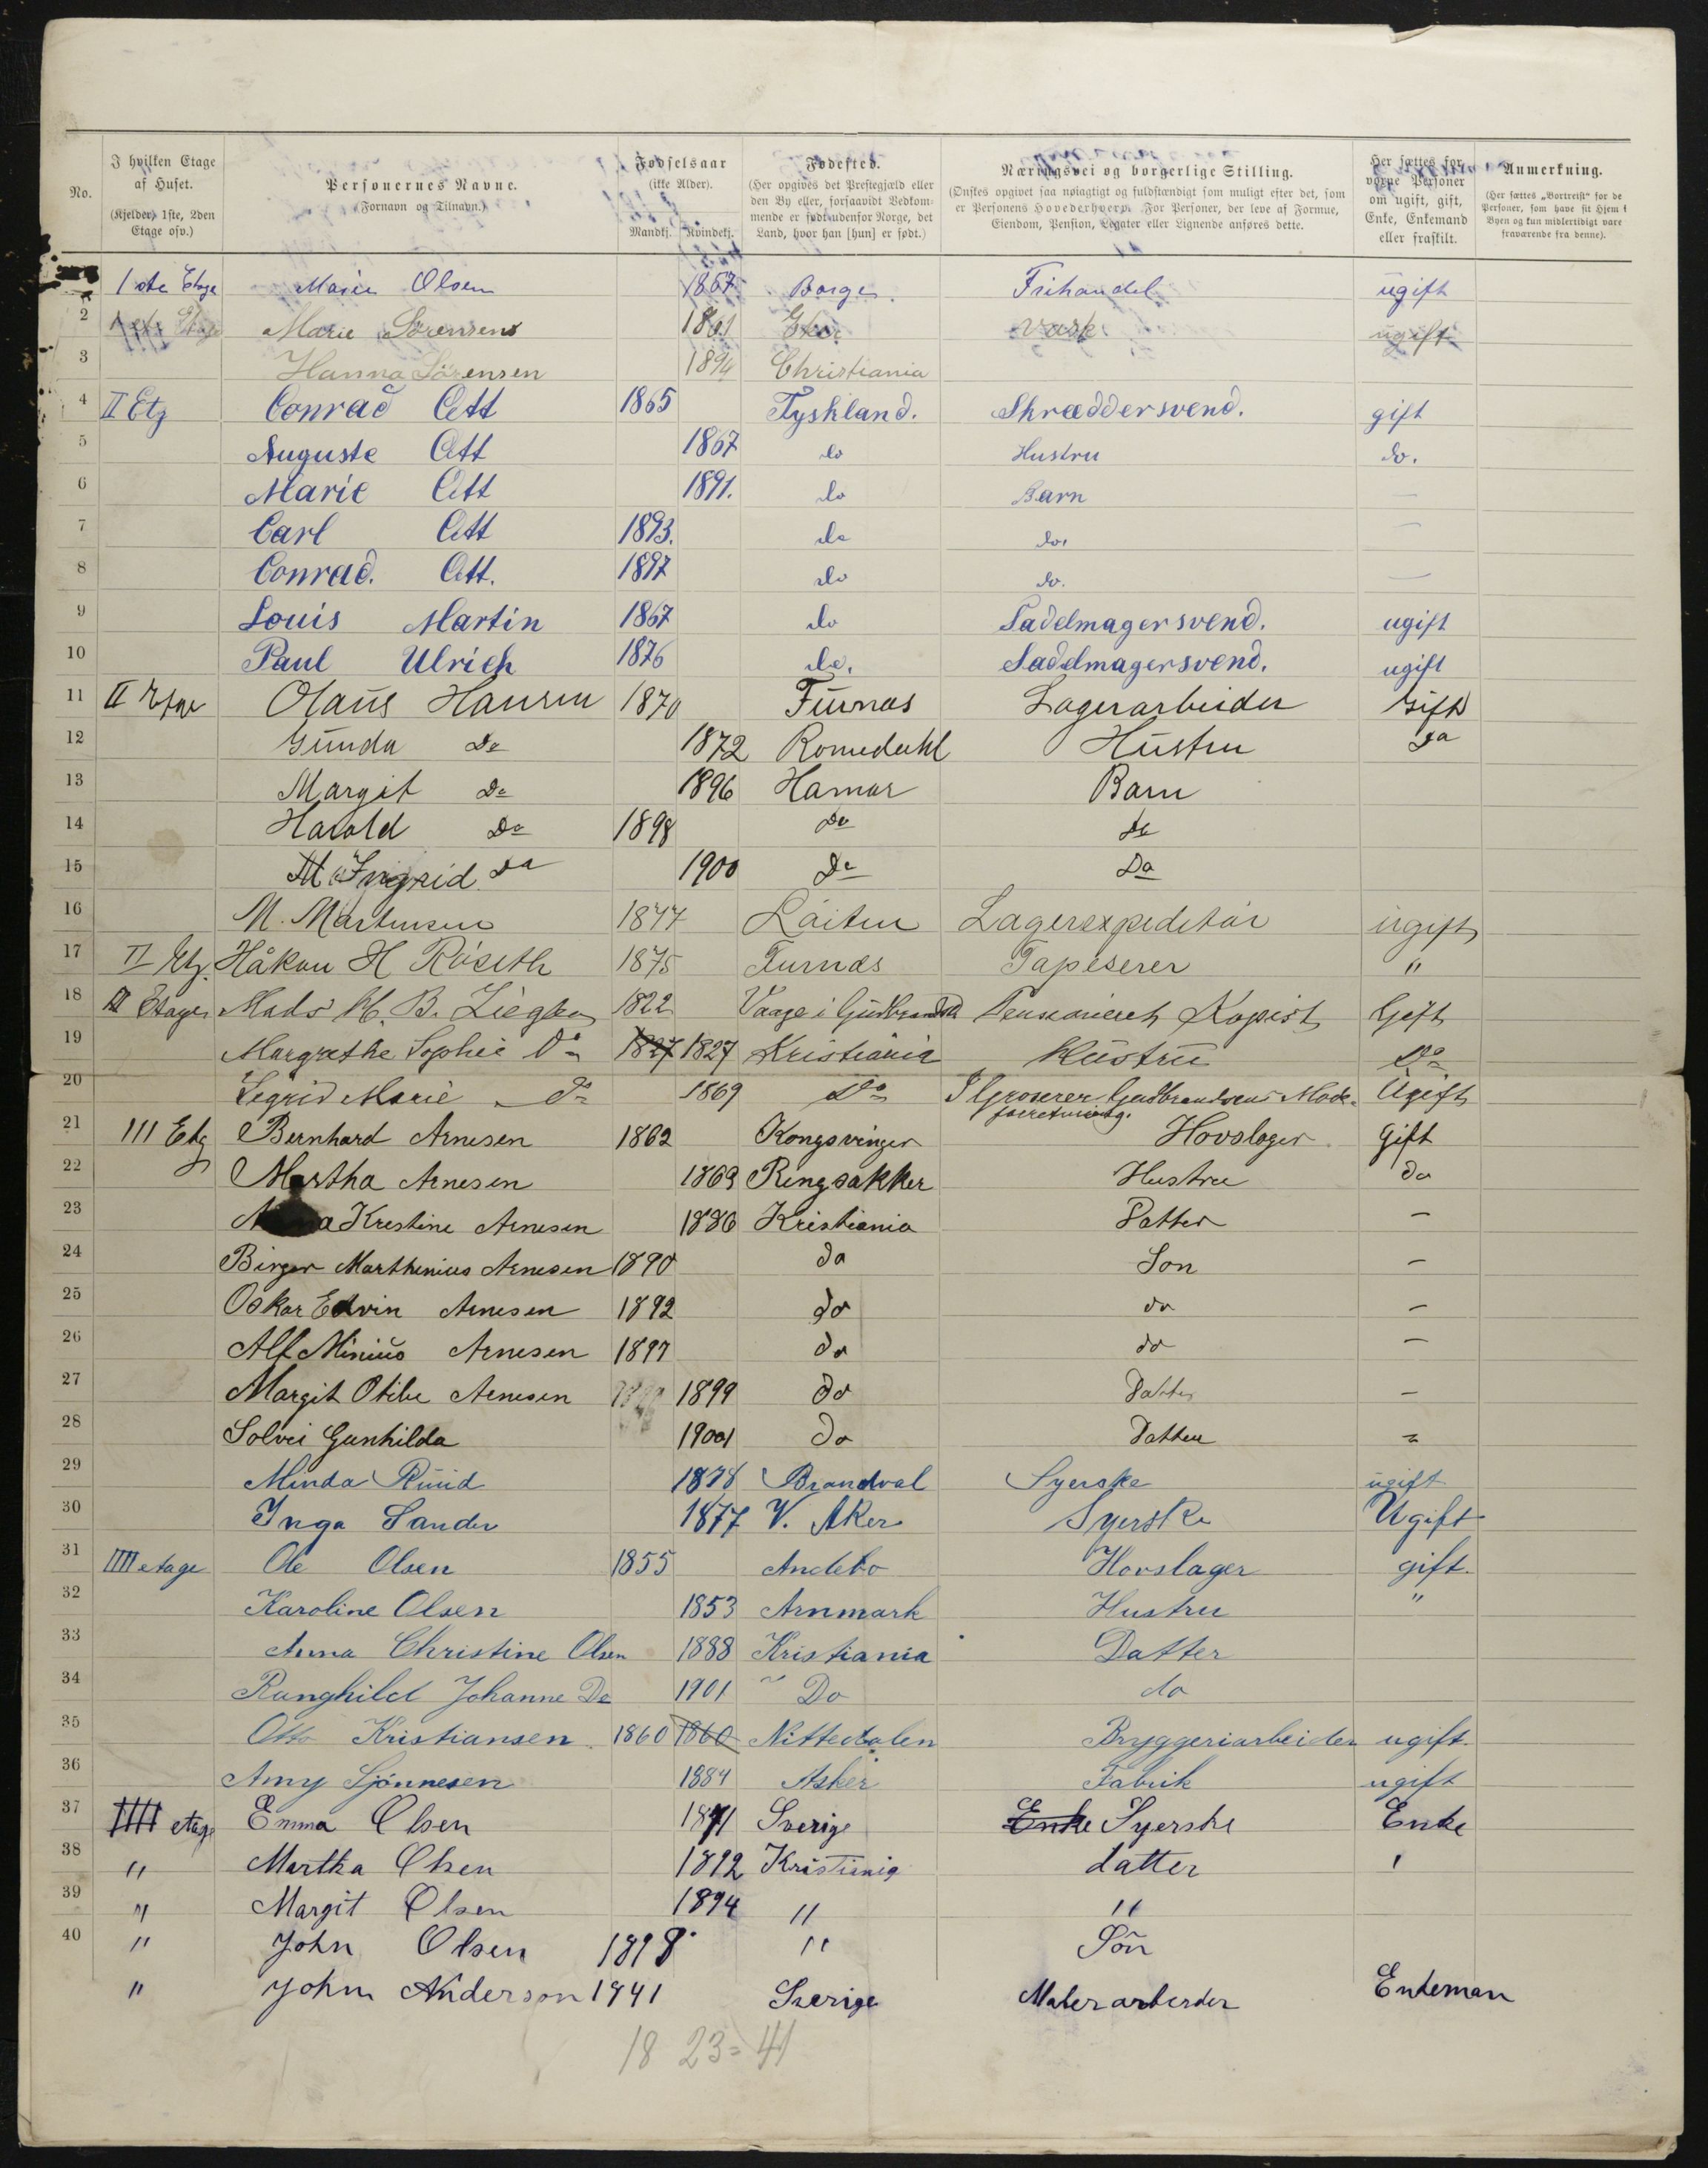 No.
I hvilken Etage af Huset.
(Kjelder, 1ste, 2den Etage osv.)
Personernes Navne.
(Fornavn og Tilnavn.)
Fødselsaar
(ikke Alder).
Mandkj. Kvindekj.
Fødested.
(Her opgives det Prestegjæld eller den By eller, forsaavidt Vedkommende er født udenfor Norge, det Land, hvor han [hun] er født.)
Næringsvei og borgerlige Stilling.
(Ønskes opgivet saa nøiagtigt og fuldstændigt som muligt efter det, som er Personens Hovederhverv. For Personer, der leve af Formue, Eiendom, Pension, Legater eller Lignende anføres dette.
Her sættes for voxne Personer om ugift, gift, Enke, Enkemand eller fraskilt.
Anmerkning.
(Her sættes „Bortreist“ for de Personer, som have sit Hjem i Byen og kun midlertidigt vare fraværende fra denne).
1ste Etage Marie Olsen 1867 Borge Frihandel ugift
2 1ste Etage Marie Sørensens 1861 vask ugift
3 Hanna Sörensen 1894 Christiania
4 II Etg Conrad Ott 1865 Tyskland. Skræddersvend. gift
5 Auguste Ott 1867 do Hustru do.
6 Marie Ott 1891. do Barn —
7 Carl Ott 1893. do do. —
8 Conrad. Ott. 1897 do do. —
9 Louis Martin 1867 do Sadelmagersvend. ugift
10 Paul Ulrich 1876 do. Sadelmagersvend. ugift
11 II Etge Olaus Hansen 1870 Furnes Lagerarbeider Gift
12 Gunda Do 1872 Romedahl Hustru Do
13 Margit Do 1896 Hamar Barn
14 Harald Do 1898 Do Do
15 M Ingrid Do 1900 Do Do
16 M. Martinsen 1877 Löiten Lagerexpeditör ugift
17 II Etg. Håkon H Röseth 1875 Furnes Tapeserer "
18 III Etage Mads H. B. Ziegler 1822 Vaage i Gudbrandsd. Pensioneret Kopist Gift
19 Margrethe Sophie Do 1827 1827 Kristiania Hustru Do
20 Sigrid Marie Do 1869 Do I Groserer Gudbrandsens Mode- Ugift
forretning.
21 III Etg Bernhard Arnesen 1862 Kongsvinger Hovslager Gift
22 Martha Arnesen 1863 Ringsakker Hustru do
23 Kristine Arnesen 1886 Kristiania Datter —
24 Birger Marthinius Arnesen 1890 do Son —
25 Oskar Edvin Arnesen 1892 do do —
26 Alf Minius Arnesen 1897 do do —
27 Margit Otilie Arnesen 1899 do Datter —
28 Solvei Gunhilda 1901 do Datter "
29 Minda Ruud 1878 Brandval Syerske ugift
30 Inga Sander 1877 V. Aker Syerske Ugift
31 IIII etage Ole Olsen 1855 Andebo Hovslager gift.
32 Karoline Olsen 1853 Arnmark Hustru "
33 Anna Christine Olsen 1888 Kristiania Datter
34 Ranghild Johanne Do 1901 " Do do
35 Otto Kristiansen. 1860 1860 Nittedalen Bryggeriarbeider ugift.
36 Amy Sjönnesen 1884 Asker Fabrik ugift
37 IIII etage Emma Olsen 1871 Sverige Enke Syerske Enke
38 " Martha Olsen 1892 Kristiania datter '
39 " Margit Olsen 1894 " "
40 " John Olsen 1898 " Sön
" John Anderson 1841 Sverige Malerarbeider Enkeman
18 23 = 41